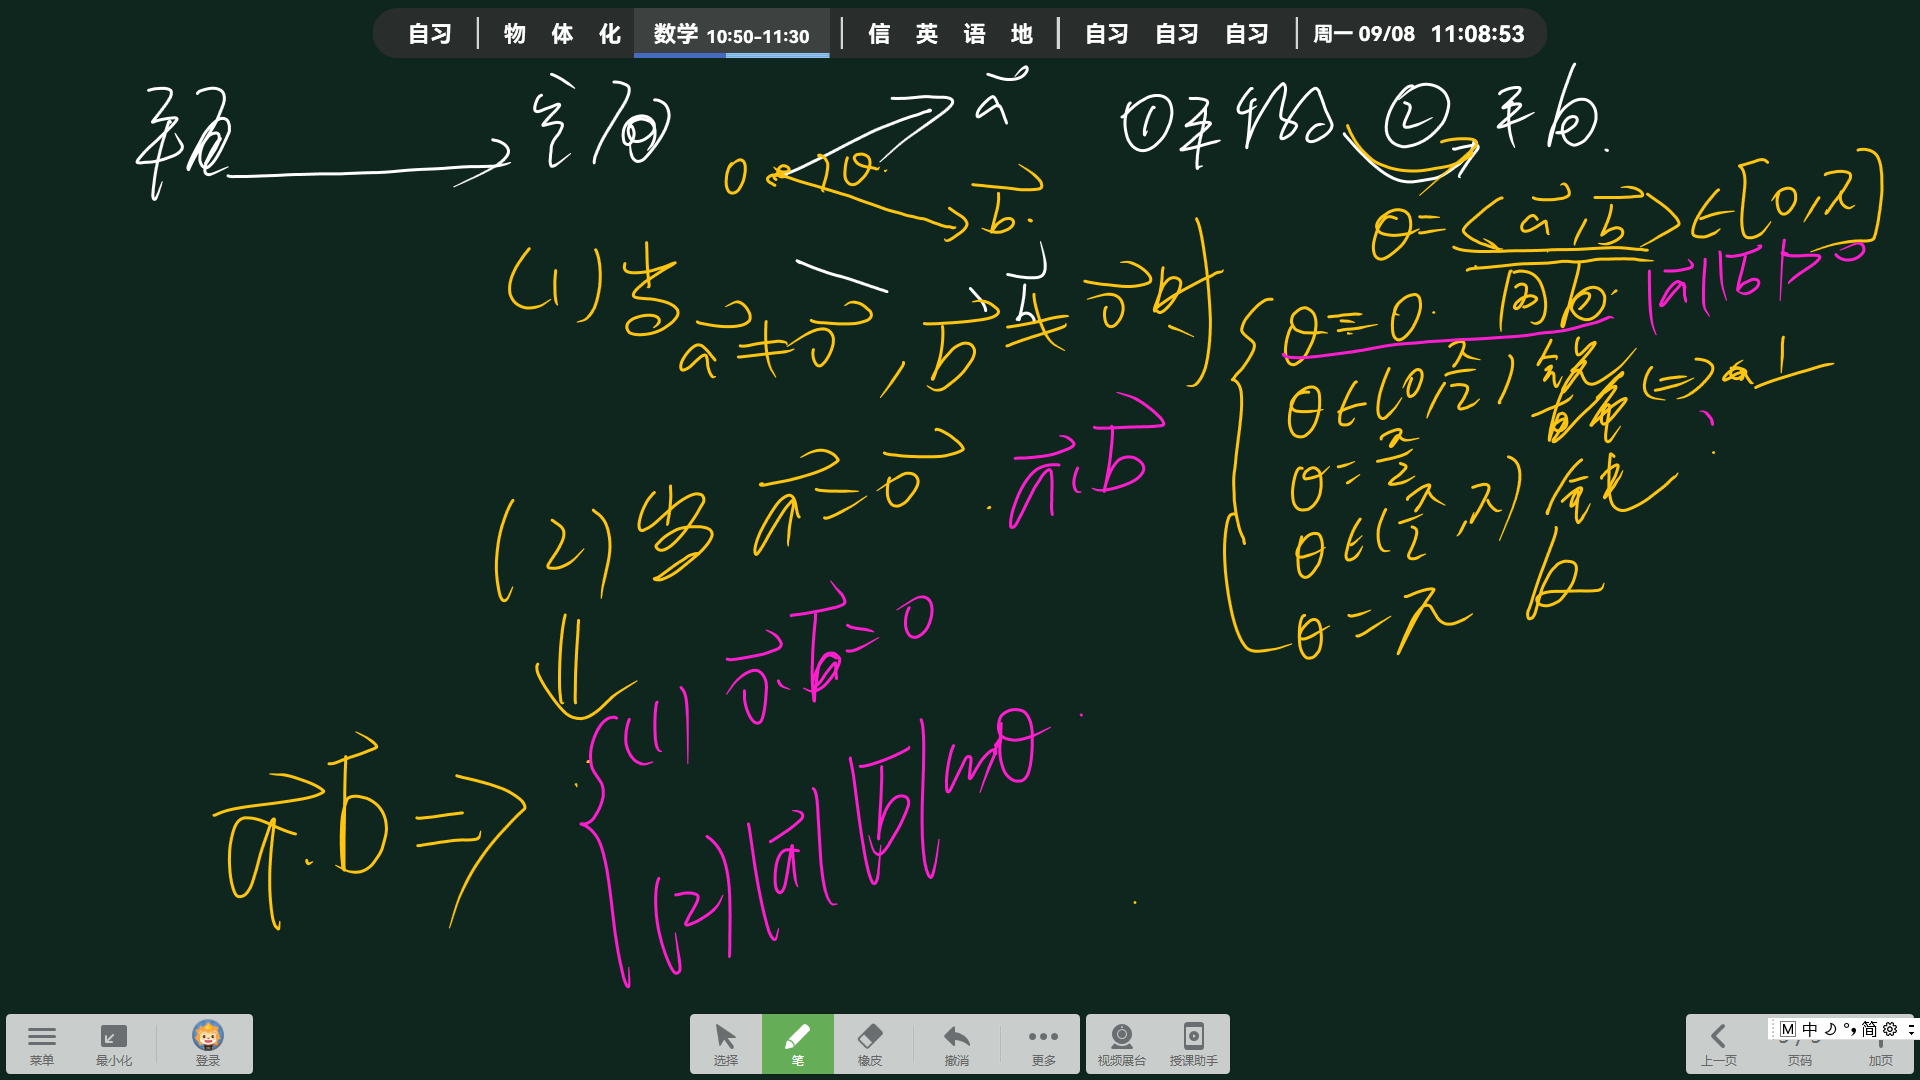 自习 物 体 化 数学 10:50-11:30 信 英 语 地 自习 自习 自习 周一 09/08 11:08:53
平面 → 空间
a⃗
0 θ
b⃗
① 平移 ② 平面
θ=<a⃗,b⃗>∈[0,π]
(1) 当 a⃗≠0⃗, b⃗≠0⃗时
θ=0. 同向. |a⃗||b⃗|>0
θ∈(0,π/2) 锐
直角 ⇔ ⊥
θ=π/2
θ∈(π/2,π) 钝
θ=π 反
(2) 当 a⃗=0⃗. a⃗·b⃗
⇓
a⃗·b⃗ ⇒
(1) 0⃗·b⃗=0
(2) |a⃗||b⃗|cosθ
菜单 最小化 登录 选择 笔 橡皮 撤消 更多 视频展台 授课助手 上一页 页码 加页
M 中 简